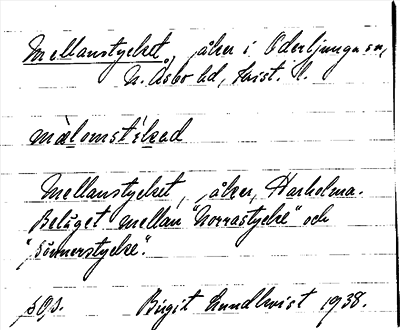 Mellanstycket, åker i Oderljunga sn,
N. Åsbo hd, Krist. l.
mælomstékad
Mellanstycket, åker, Harholma.
Beläget mellan "Norrastycke" och
"Sönnerstycke".
Birgit Lundkvist 1938.